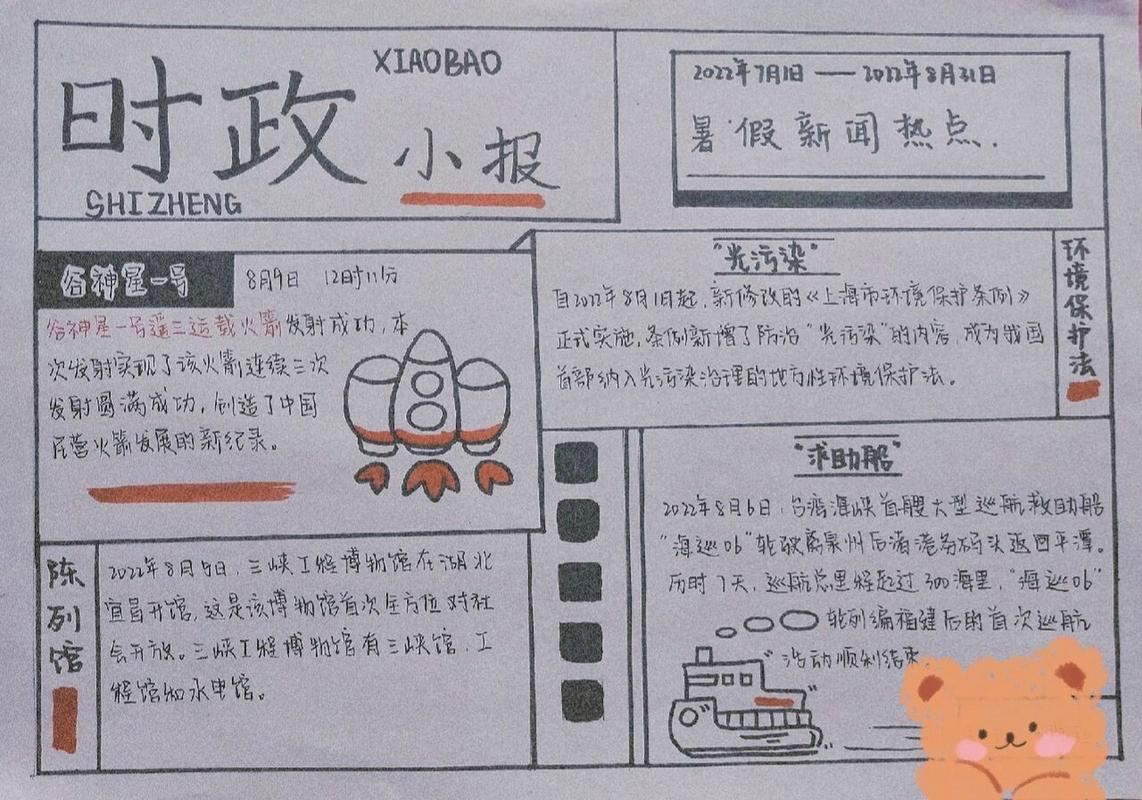 XIAOBAO
时政 小报
SHIZHENG
2022年7月1日 —— 2022年8月31日
暑假新闻热点.
谷神星一号
8月9日 12时11分
谷神星一号遥三运载火箭发射成功,本
次发射实现了该火箭连续三次
发射圆满成功,创造了中国
民营火箭发展的新纪录。
"光污染"
自2022年8月1日起,新修改的《上海市环境保护条例》
正式实施,条例新增了防治"光污染"的内容,成为我国
首部纳入光污染治理的地方性环境保护法。
环境保护法
陈列馆
2022年8月5日,三峡工程博物馆在湖北
宜昌开馆,这是该博物馆首次全方位对社
会开放。三峡工程博物馆有三峡馆,工
程馆和水电馆。
"求助船"
2022年8月6日,台湾海峡首艘大型巡航救助船
"海巡06"轮驶离泉州后渚港务码头返回平潭。
历时7天,巡航总里程超过300海里,"海巡06"
轮列编福建后的首次巡航
活动顺利结束